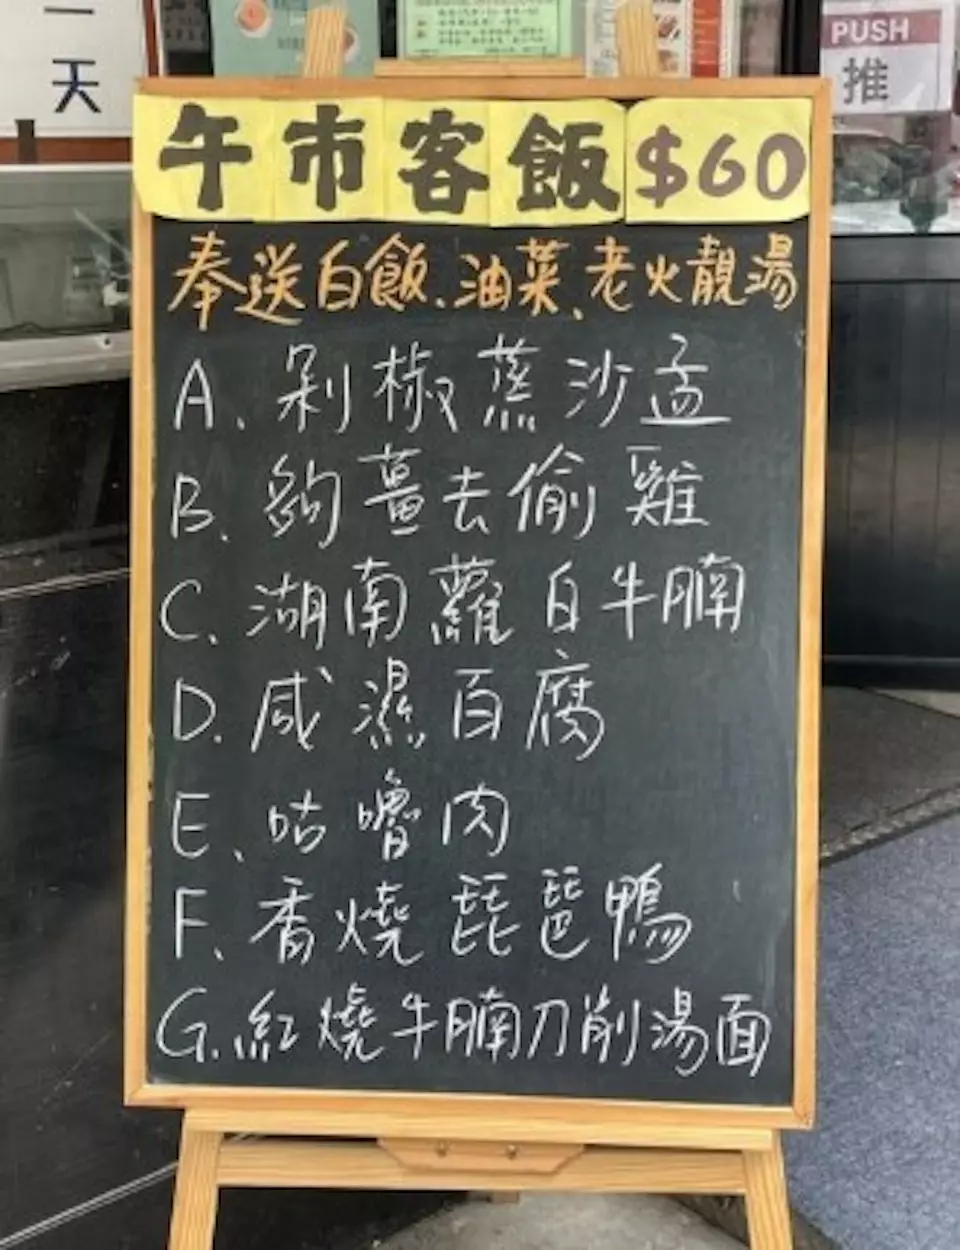 一
天
PUSH
推
午市客飯$60
奉送白飯、油菜、老火靚湯
A、剁椒蒸沙孟
B. 夠薑去偷雞
C. 湖南蘿白牛腩
D. 咸濕百腐
E、咕嚕肉
F. 香燒琵琶鴨
G.紅燒牛腩刀削湯面